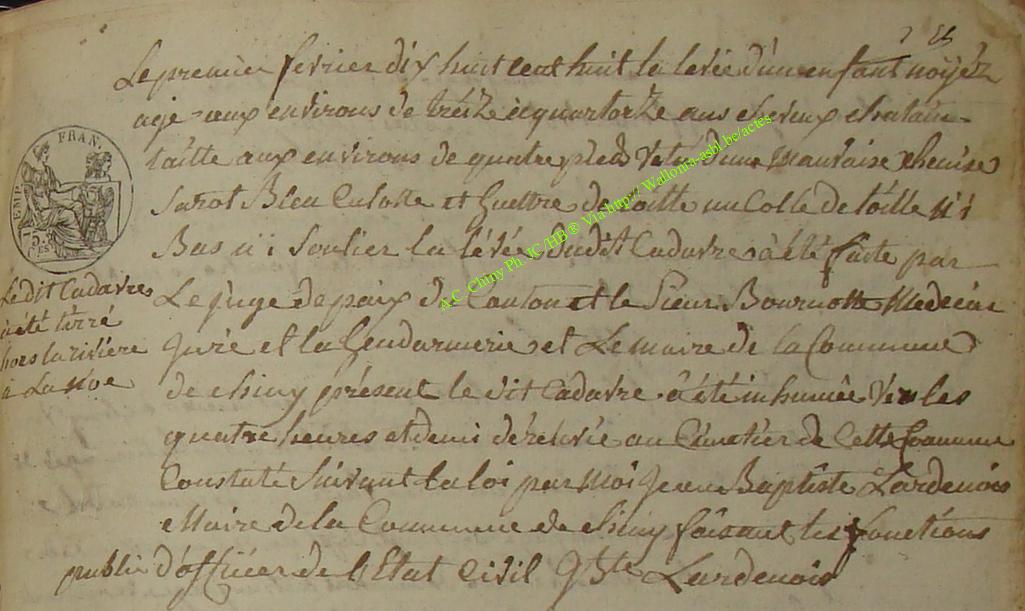 Le premier fevrier dix huit cent huit la levée d'un enfant noÿéz
agé aux environs de treize a quartorze ans cheveux chatain
taille aux environs de quatre pieds vetu d'une mauvaise chemise
Sarot Bleu Culotte et Guettre de toille un Colle de toille ni
Bas ni Soulier la lévée dudit Cadavre à été faite par
Le juge de paix du Canton et le Sieur Bournotte Medecin
Juré et la Gendarmerie et Le maire de la Commune
de chiny présent le dit Cadavre à été inhumée vers les
quatre heures et demi dérelevée au Cimetier de Cette Commune
Constaté Suivant la loi par moi Jean Baptiste Lardenois
Maire de la Commune de chiny faisant les fonctions
public d'officier de l'Etat Civil Jbte Lardenois
Le dit Cadavre
a été tirré
hors la rivière
a La
EMP. FRAN.
75
CES
A.C. Chiny Ph. JC/HB® Via http:// Wallonia-asbl.be/actes